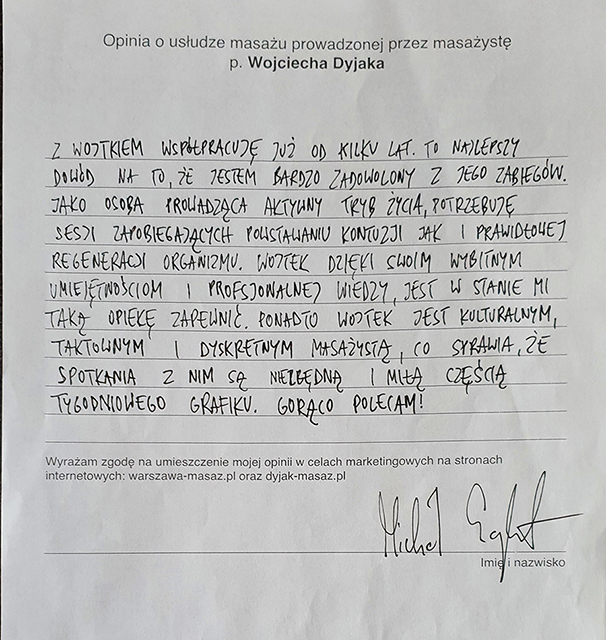 Opinia o usłudze masażu prowadzonej przez masażystę
p. Wojciecha Dyjaka
Z WOJTKIEM WSPÓŁPRACUJĘ JUŻ OD KILKU LAT. TO NAJLEPSZY
DOWÓD NA TO, ŻE JESTEM BARDZO ZADOWOLONY Z JEGO ZABIEGÓW.
JAKO OSOBA PROWADZĄCA AKTYWNY TRYB ŻYCIA, POTRZEBUJĘ
SESJI ZAPOBIEGAJĄCYCH POWSTAWANIU KONTUZJI JAK I PRAWIDŁOWEJ
REGENERACJI ORGANIZMU. WOJTEK DZIĘKI SWOIM WYBITNYM
UMIEJĘTNOŚCIOM I PROFSJONALNEJ WIEDZY, JEST W STANIE MI
TAKĄ OPIEKĘ ZAPEWNIĆ. PONADTO WOJTEK JEST KULTURALNYM,
TAKTOWNYM I DYSKRETNYM MASAŻYSTĄ, CO SPRAWIA, ŻE
SPOTKANIA Z NIM SĄ NIEZBĘDNĄ I MIŁĄ CZĘŚCIĄ
TYGODNIOWEGO GRAFIKU. GORĄCO POLECAM!
Wyrażam zgodę na umieszczenie mojej opinii w celach marketingowych na stronach
internetowych: warszawa-masaz.pl oraz dyjak-masaz.pl
Michał
Imię i nazwisko